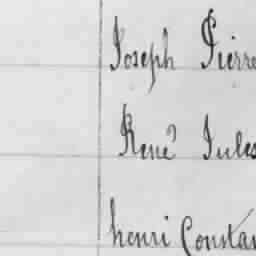 Joseph Pierre
René Jules
henri Constan